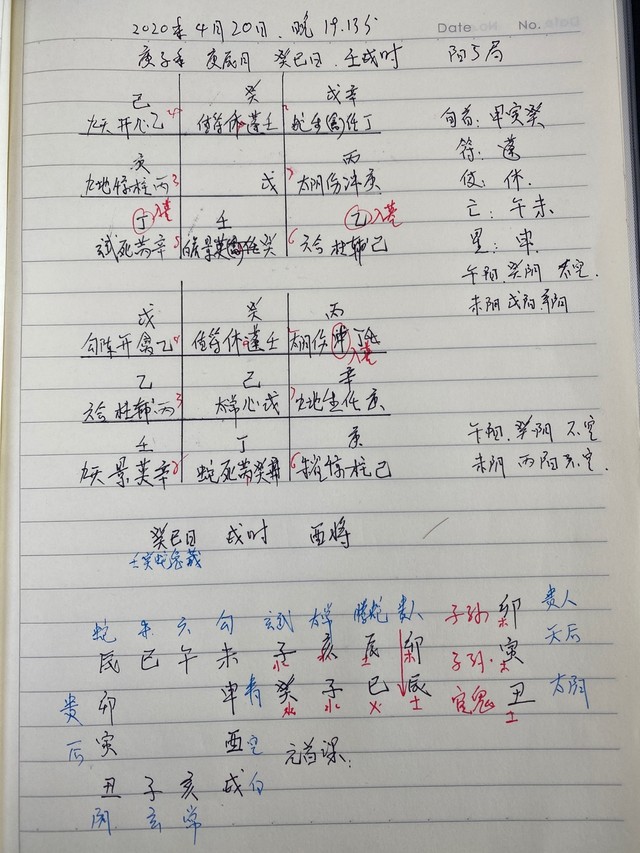 Date No.
2020年4月20日.晚19.13分
庚子年 庚辰月 癸巳日.壬戌时 阳5局
己 癸 戊辛
九天开心乙4 值符休蓬壬 蛇生(禽)任丁 旬首:甲寅癸
符:蓬
庚 丙
九地惊柱丙3 戊 7太阴伤冲庚 使:休
丁入墓 壬 乙入墓 亡:午未
玄武死芮辛 景英 癸 6六合杜辅己 星:申
午阳.癸阴 不空.
未阴 戊阳 辛阴
戊 癸 丙
勾陈开禽乙4 值符休蓬壬 太阴伤冲丁 入墓
乙 己 辛
六合杜辅丙3 太常心戊 7九地生任庚
壬 丁 庚 午阳.癸阴 不空
九天景英辛8 蛇死芮癸 6朱雀惊柱己 未阴 丙阳 不空.
癸巳日 戌时 酉将
壬癸蛇兔藏
蛇 朱 六 勾 玄武 太常 螣蛇 贵人 子孙 卯木 贵人
辰 巳 午 未 子水 亥水 辰土 卯木 子孙.寅木 天后
贵 卯 申青 癸水 子水 巳火 辰土 官鬼 丑土 太阴
后 寅 酉空 元首课.
丑 子 亥 戌白
阴 玄 常